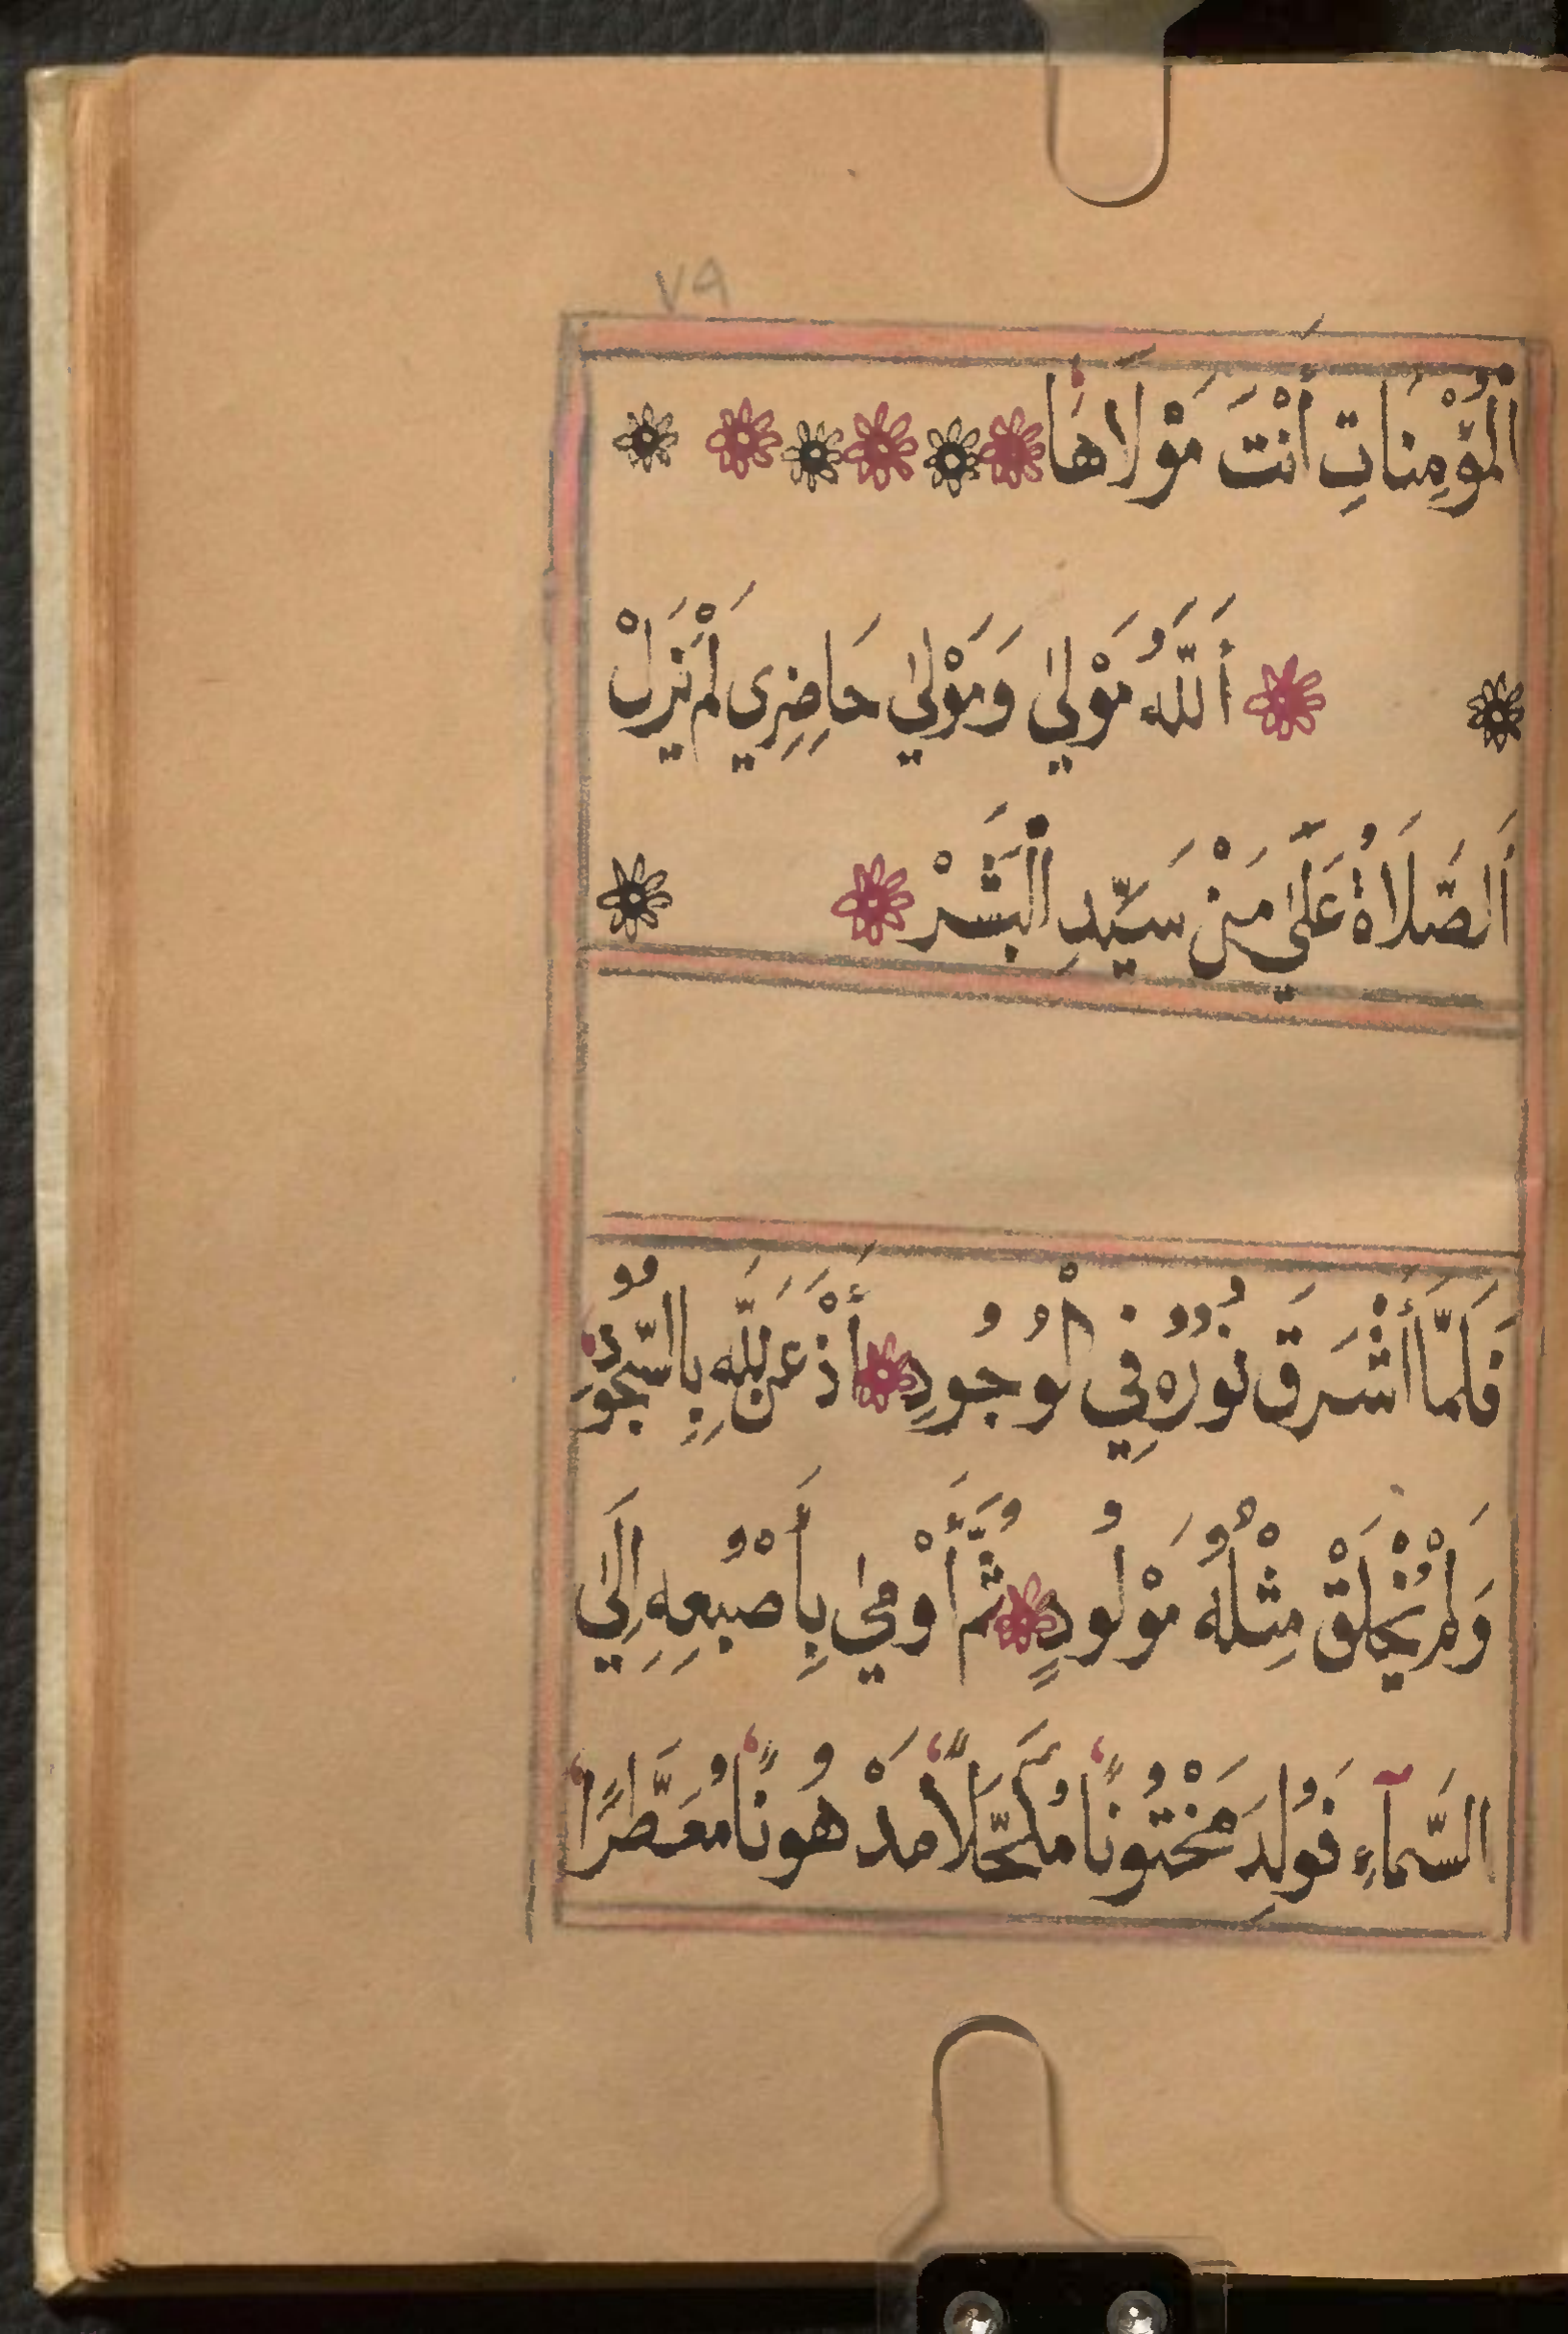 ٧٩
اَلْمُؤْمِنَاتِ أَنْتَ مَوْلَاهَا
أَللَّهُ مَوْلَيٰ وَمَوْلَيٰ حَاضِرِي لَمْ نَزَلْ
اَلصَّلَاةُ عَلَيٰ مَنْ سَيِّدِ الْبَشَرْ
فَلَمَّا أَشْرَقَ نُورُهُ فِي الْوُجُودِ أَذْعَنَ لِلَّهِ بِالسُّجُودِ
وَلَمْ يُخْلَقْ مِثْلُهُ مَوْلُودٍ ثُمَّ أَوْمَيٰ بِأَصْبُعِهِ إِلَيٰ
السَّمَآءِ فَوُلِدَ مَخْتُونًا مُكَحَّلًا مَدْهُونًا مُعَطَّرًا